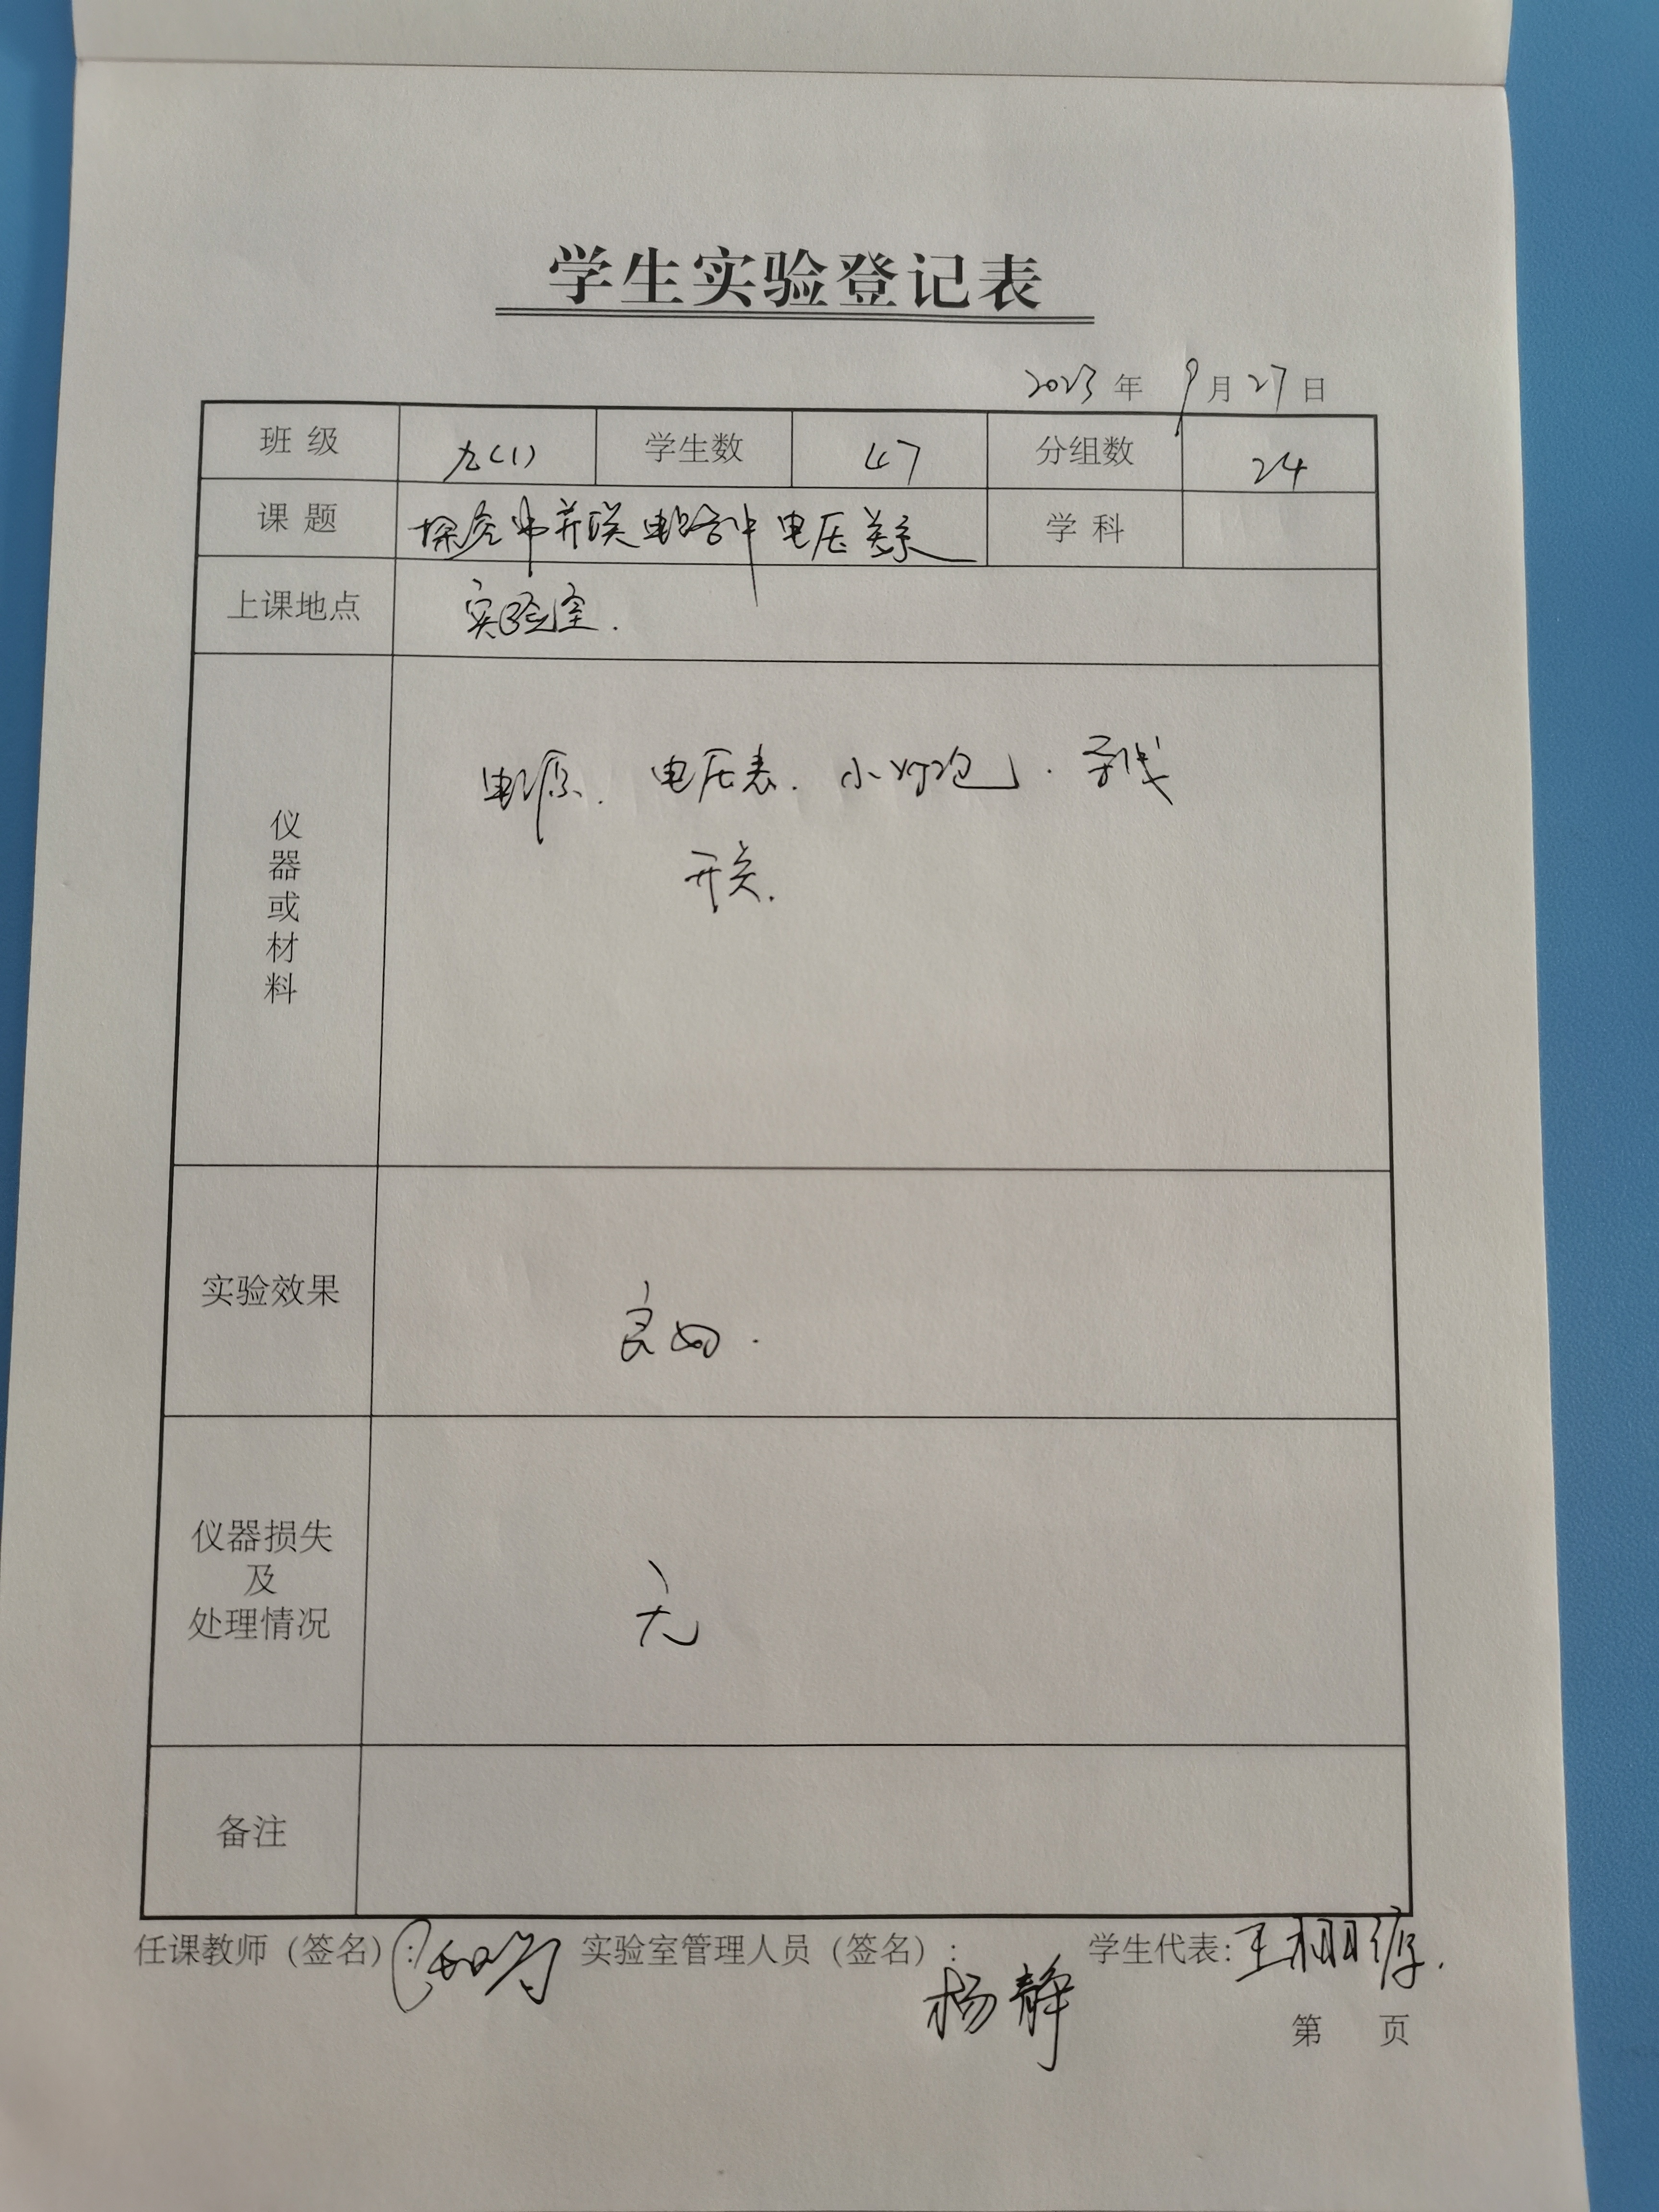 学生实验登记表
2023年 9月27日
班级 九(1) 学生数 47 分组数 24
课题 探究串并联电路中电压关系 学科
上课地点 实验室.
仪器或材料 电源、电压表、小灯泡、导线
开关.
实验效果 良好.
仪器损失
及
处理情况 无
备注
任课教师(签名): 实验室管理人员(签名): 杨静 学生代表: 王
第 页